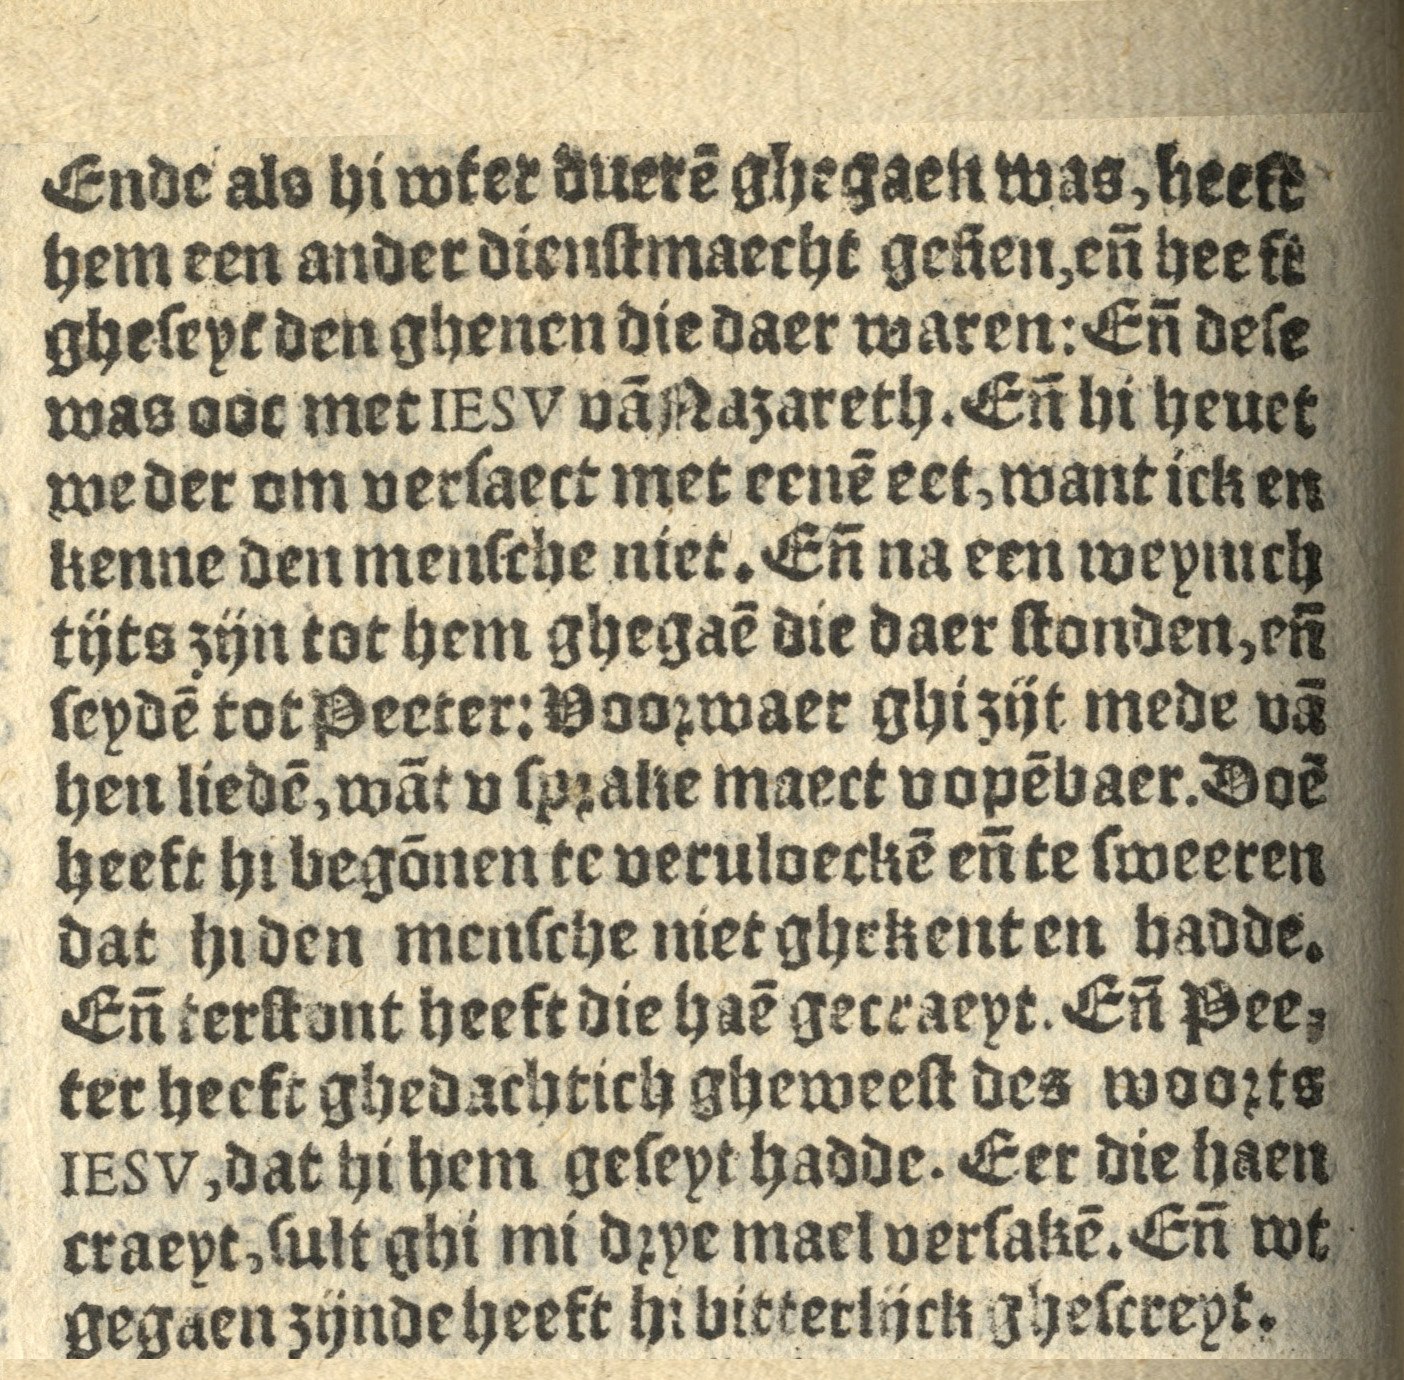 Ende als hi wter duerē ghegaen was, heeft
hem een ander dienstmaecht gesien, en̄ heeft
gheseyt den ghenen die daer waren: En̄ dese
was ooc met IESV vā Nazareth. En̄ hi heuet
weder om versaect met eenē eet, want ick en
kenne den mensche niet. En̄ na een weynich
tijts zijn tot hem ghegaē die daer stonden, en̄
seydē tot Peeter: Voorwaer ghi zijt mede vā
hen liedē, wāt v sprake maect v opēbaer. Doē
heeft hi begōnen te veruloeckē en̄ te sweeren
dat hi den mensche niet ghekent en hadde.
En̄ terstont heeft die haē gecraeyt. En̄ Pee-
ter heeft ghedachtich gheweest des woorts
IESV, dat hi hem geseyt hadde. Eer die haen
craeyt, sult ghi mi drye mael versakē. En̄ wt
gegaen zijnde heeft hi bitterlijck ghescreyt.